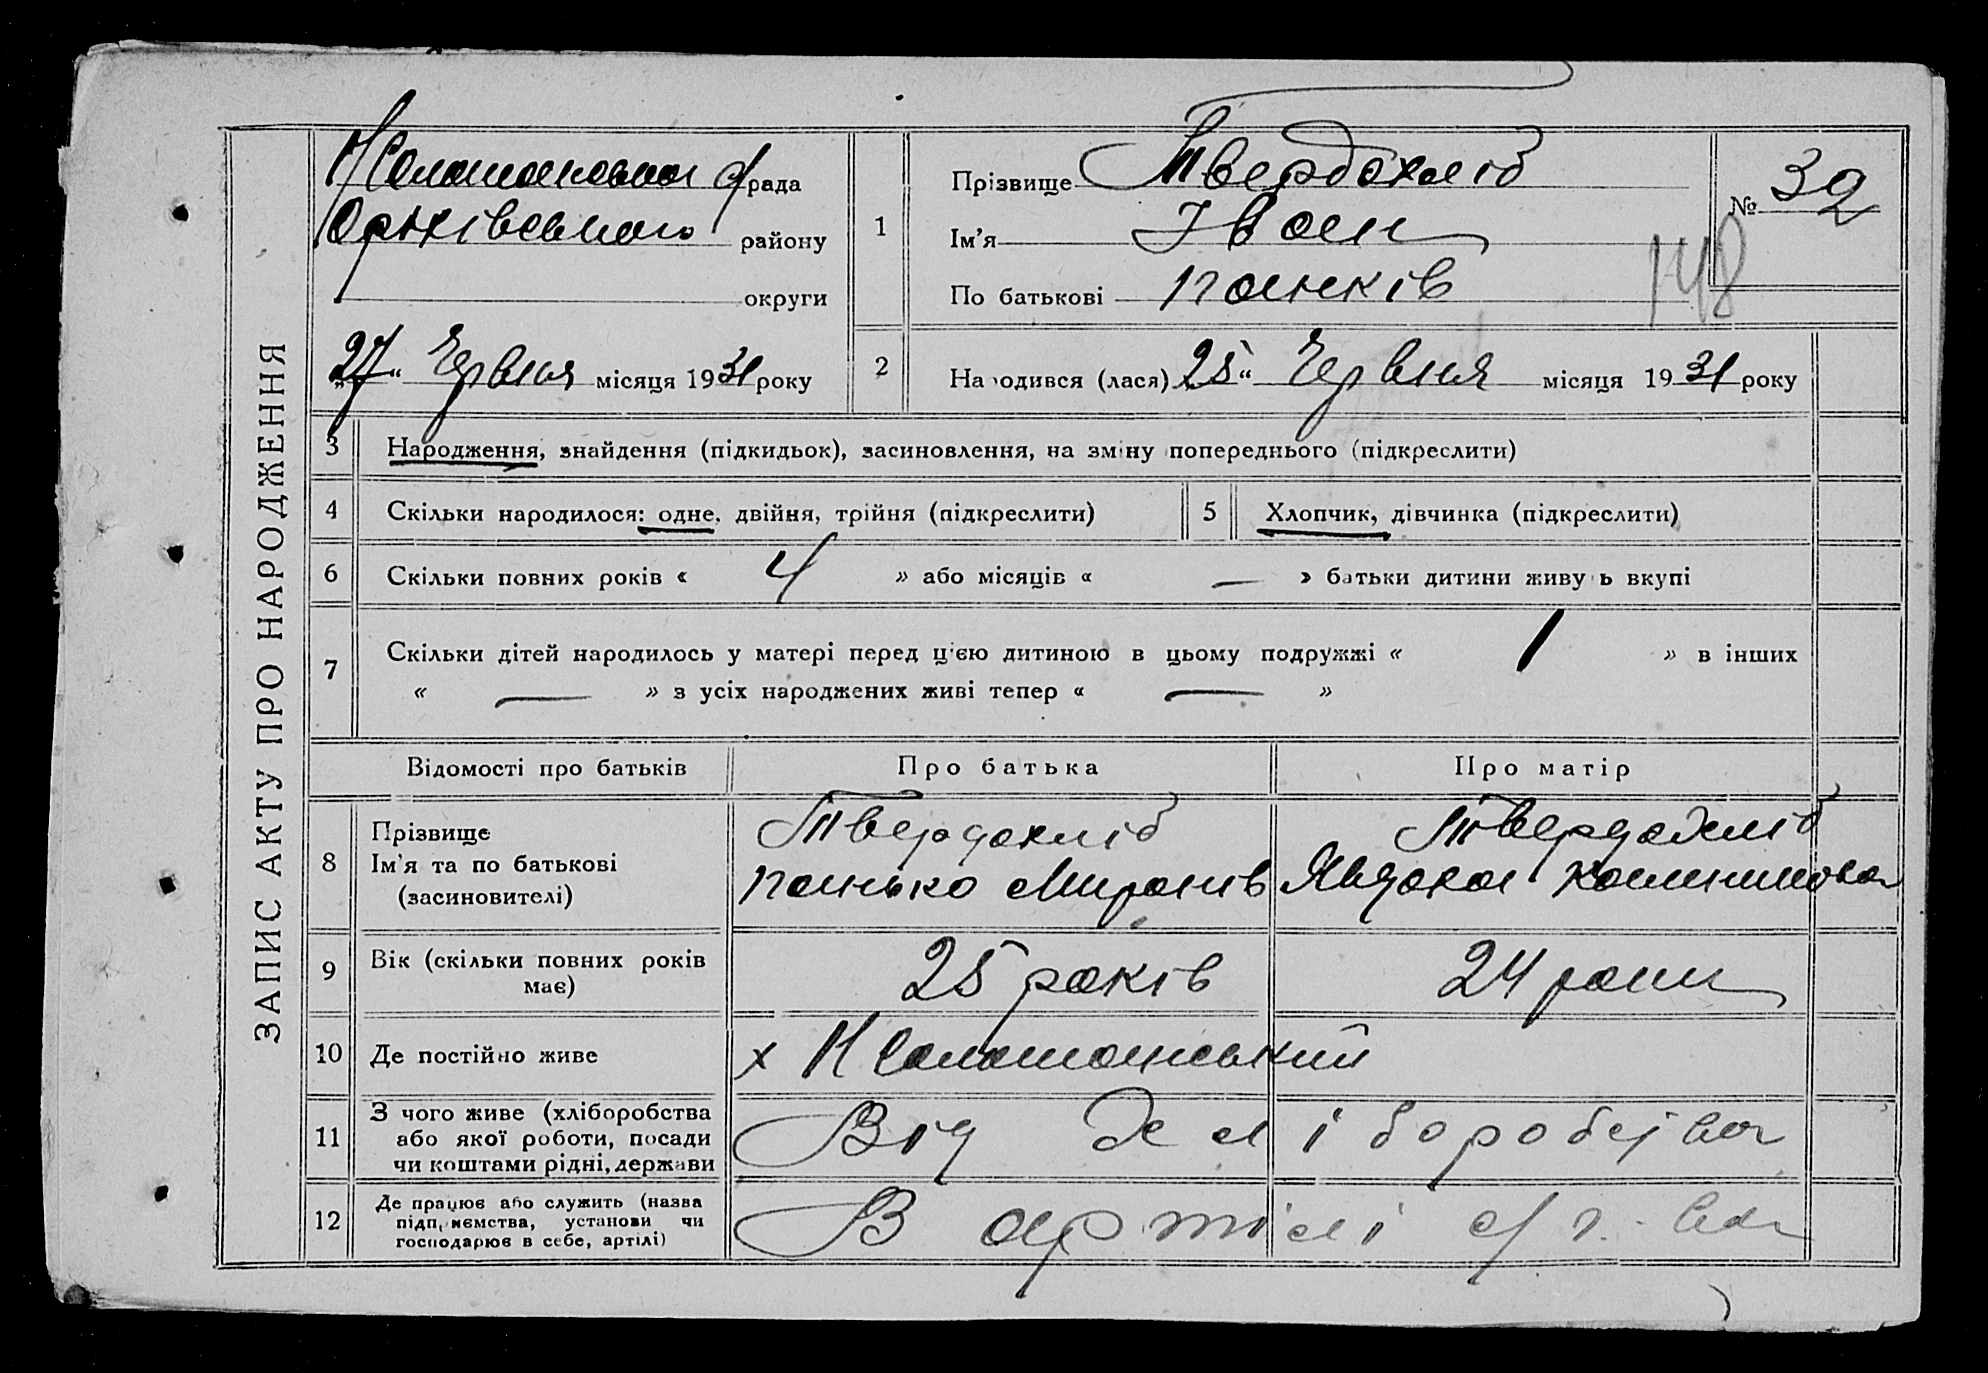 ЗАПИС АКТУ ПРО НАРОДЖЕННЯ
рада
району
округи
„27“ Червня місяця 1931 року
1
Прізвище Твердохліб
Ім'я Іван
По батькові паньків
№ 32
148
2
Народився (лася) 25“ Червня місяця 1931 року
3 Народження, знайдення (підкидьок), засиновлення, на зміну попереднього (підкреслити)
4 Скільки народилося: одне, двійня, трійня (підкреслити) 5 Хлопчик, дівчинка (підкреслити)
6 Скільки повних років « 4 » або місяців « — » батьки дитини живуть вкупі
7 Скільки дітей народилось у матері перед ц'єю дитиною в цьому подружжі « 1 » в інших
« — » з усіх народжених живі тепер « — »
Відомості про батьків Про батька Про матір
8 Прізвище Ім'я та по батькові (засиновителі)
Твердохліб
панько Миронів
Твердохліб
Явдоха
9 Вік (скільки повних років має) 25 років 24 роки
10 Де постійно живе х
11 З чого живе (хліборобства або якої роботи, посади чи коштами рідні, держави Від хліборобства
12 Де працює або служить (назва підприємства, установи чи господарює в себе, артілі) В артілі с/г.